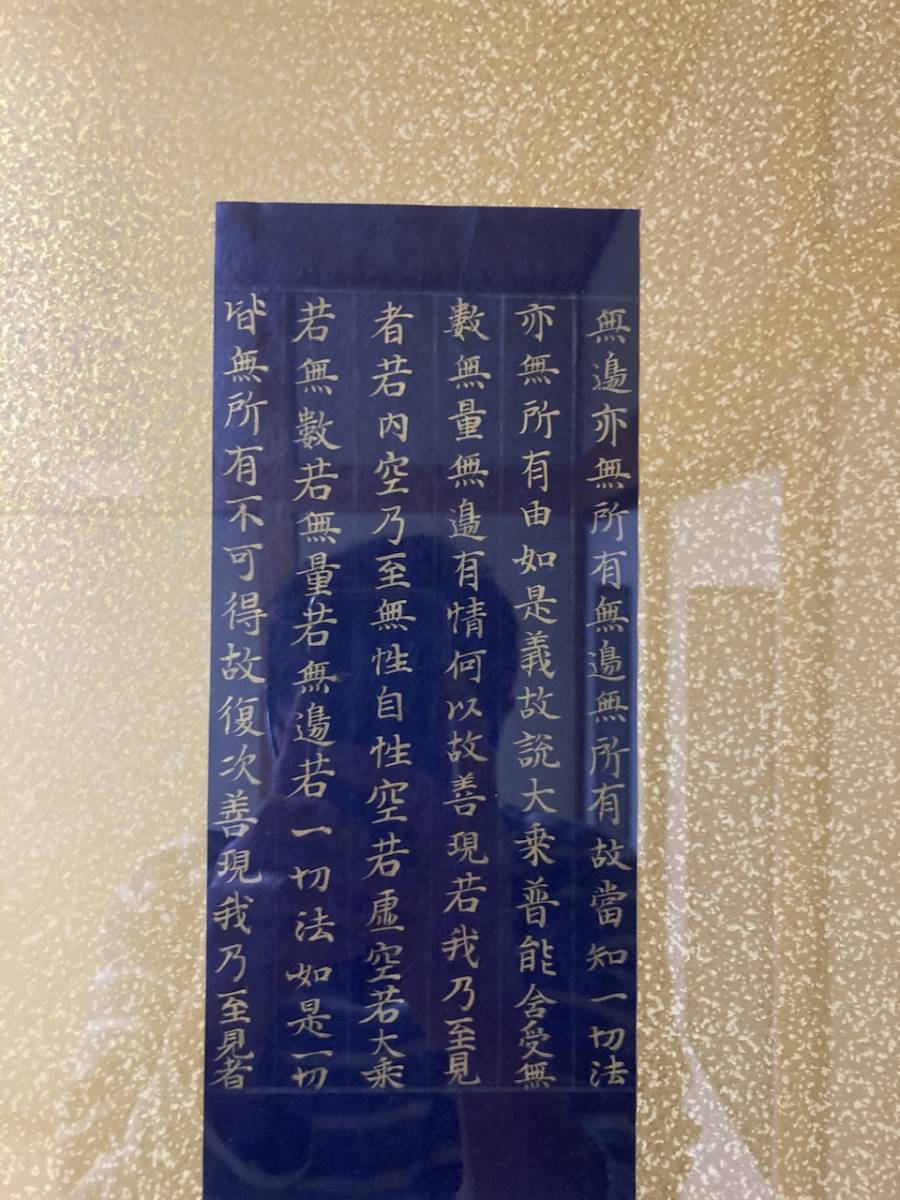 無邊亦無所有無邊無所有故當知一切法
亦無所有由如是義故說大乘普能含受無
數無量無邊有情何以故善現若我乃至見
者若內空乃至無性自性空若虛空若大乘
若無數若無量若無邊若一切法如是一切
皆無所有不可得故復次善現我乃至見者